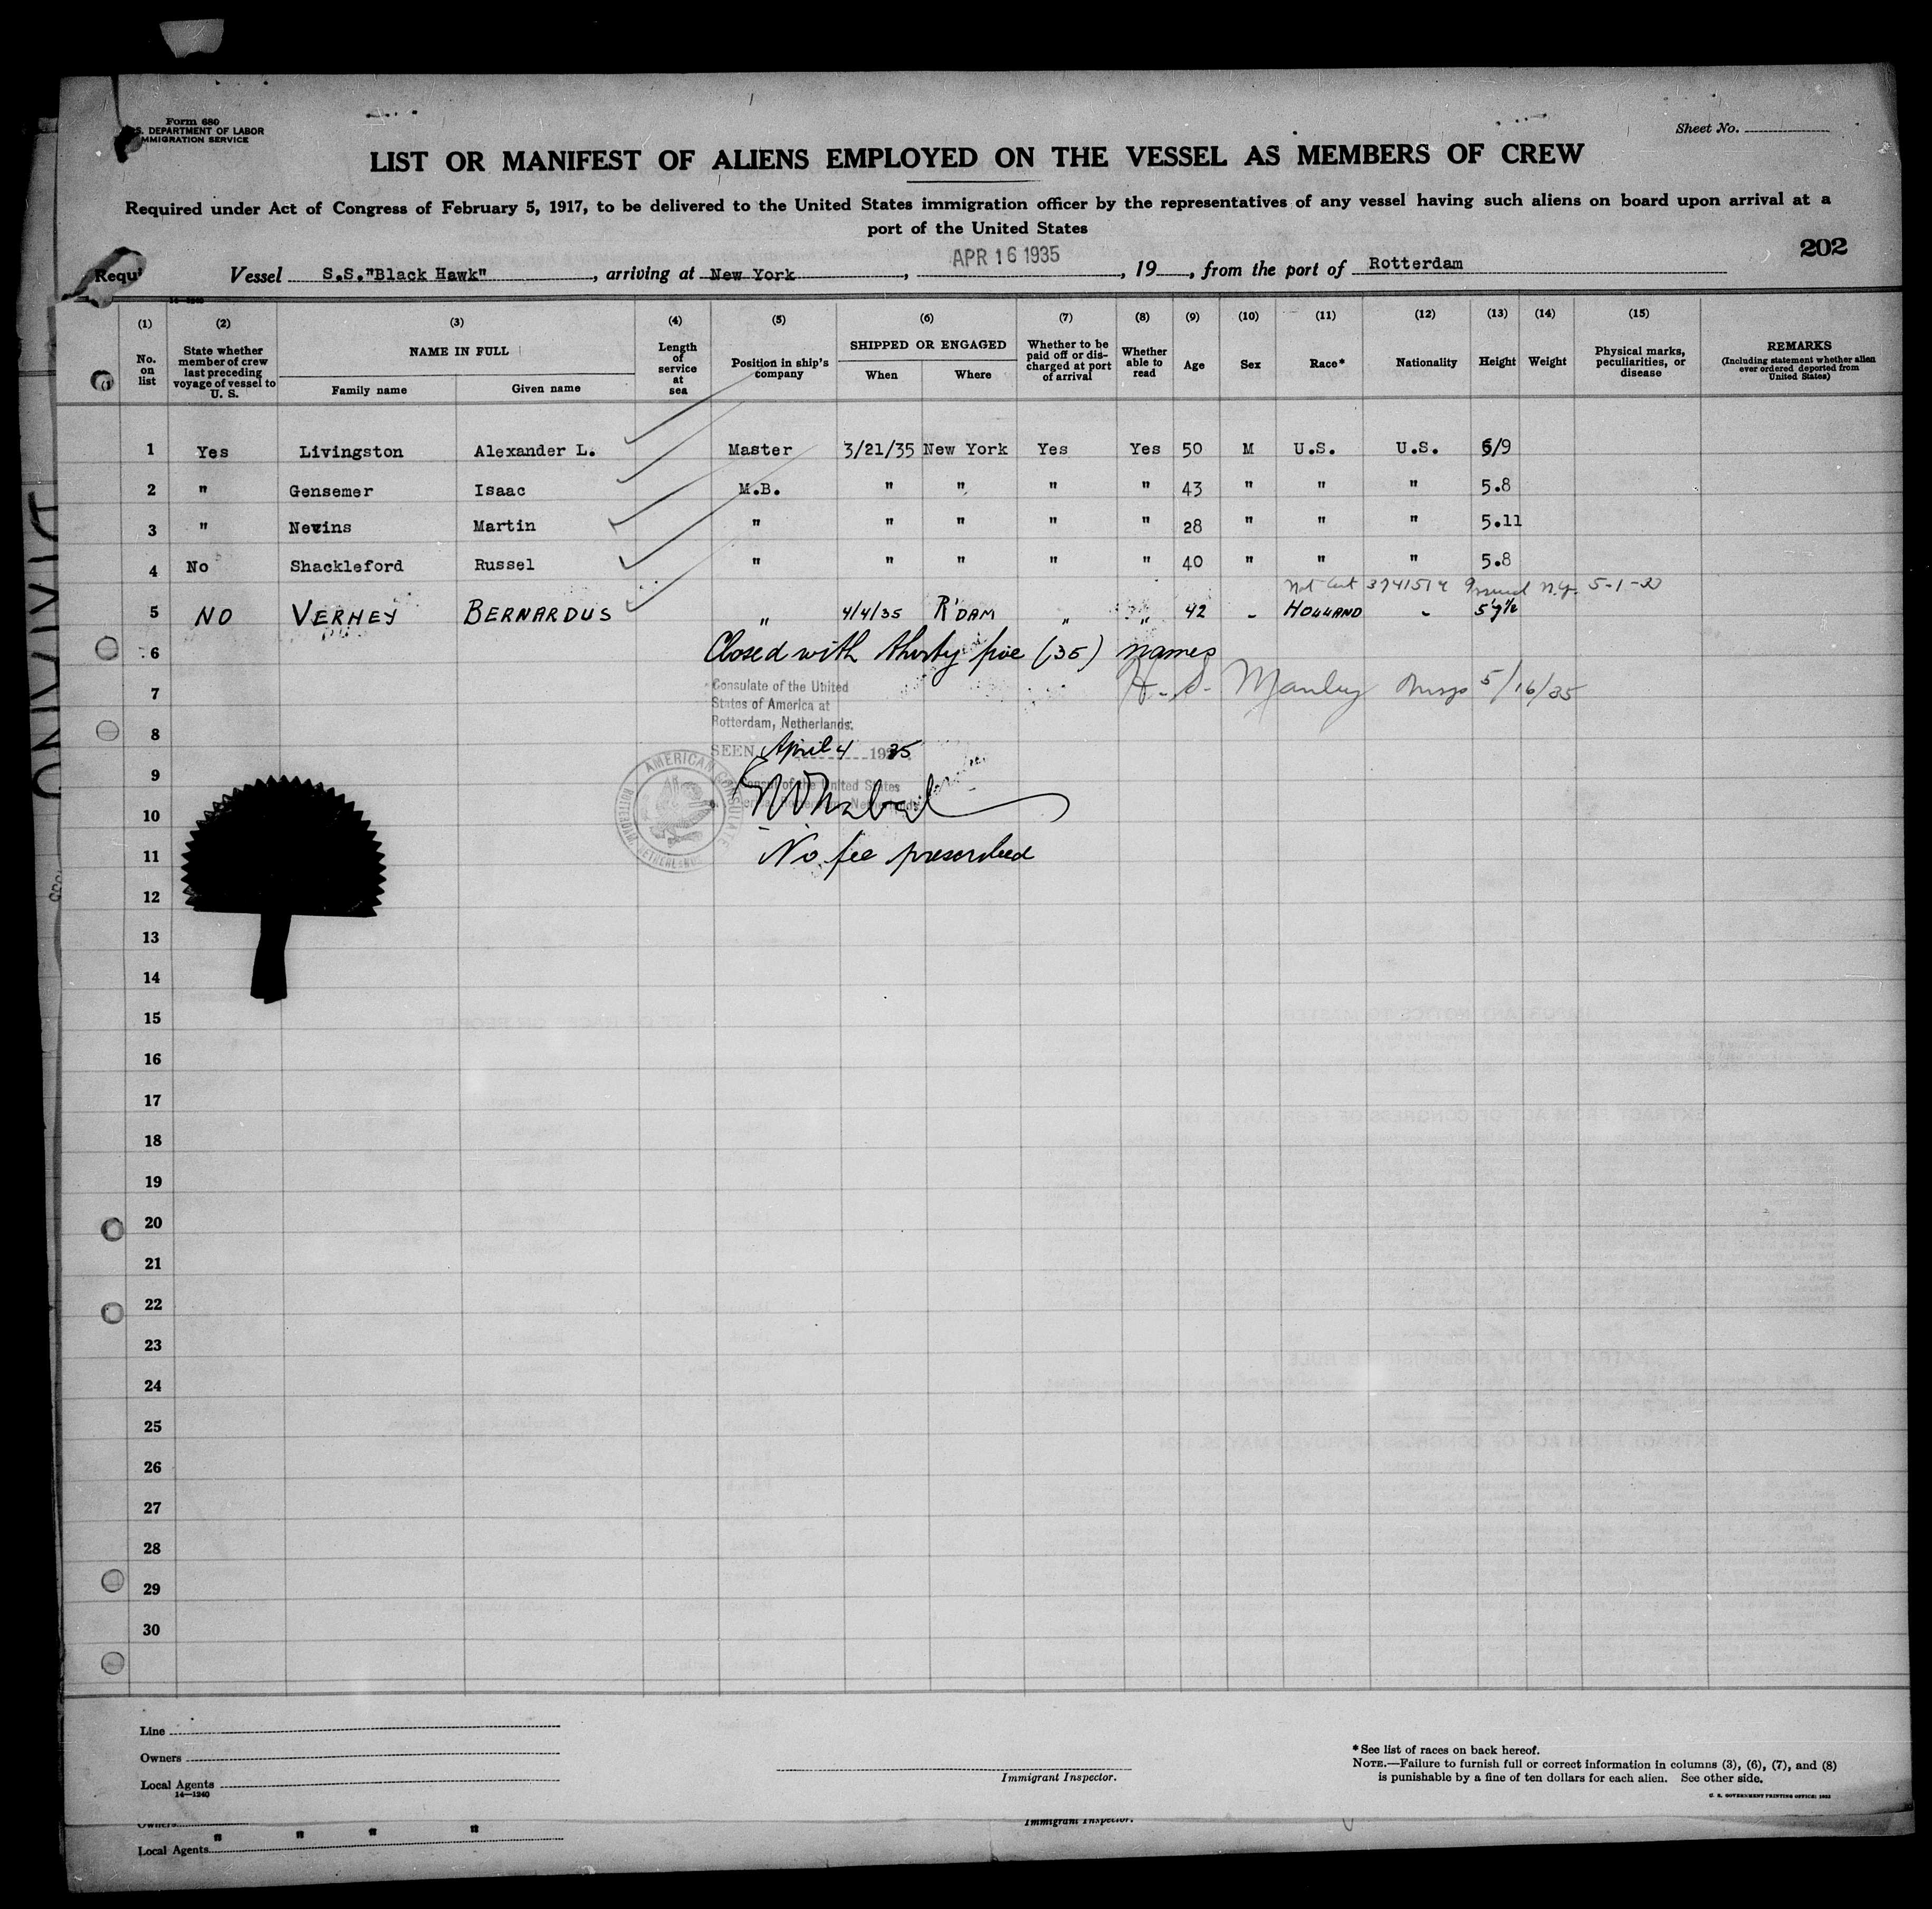 Form 680
S. DEPARTMENT OF LABOR
MMIGRATION SERVICE
Sheet No.
LIST OR MANIFEST OF ALIENS EMPLOYED ON THE VESSEL AS MEMBERS OF CREW
Required under Act of Congress of February 5, 1917, to be delivered to the United States immigration officer by the representatives of any vessel having such aliens on board upon arrival at a
port of the United States
202
Requ
Vessel S.S."Black Hawk", arriving at New York, APR 16 1935, 19, from the port of Rotterdam
(1) (2) (3) (4) (5) (6) (7) (8) (9) (10) (11) (12) (13) (14) (15)
No. on list
State whether member of crew last preceding voyage of vessel to U. S.
NAME IN FULL
Family name
Given name
Length of service at sea
Position in ship's company
SHIPPED OR ENGAGED
When
Where
Whether to be paid off or discharged at port of arrival
Whether able to read
Age
Sex
Race*
Nationality
Height
Weight
Physical marks, peculiarities, or disease
REMARKS
(Including statement whether alien ever ordered deported from United States)
1 Yes Livingston Alexander L. Master 3/21/35 New York Yes Yes 50 M U.S. U.S. 5/9
2 " Gensemer Isaac M.B. " " " " 43 " " " 5.8
3 " Nevins Martin " " " " " 28 " " " 5.11
4 No Shackleford Russel " " " " " 40 " " " 5.8
3741514 Issued N.Y. 5-1-
5 NO VERHEY BERNARDUS " 4/4/35 R'DAM " " 42 " HOLLAND " 5'7½
6 Closed with thirty five (35) names
7 H. S. Manley Insp 5/16/35
Consulate of the United
States of America at
Rotterdam, Netherlands.
8
SEEN April 4 1935
9
AMERICAN CONSULATE
ROTTERDAM, NETHERLANDS
Consul of the United States
10
11 No fee prescribed
12
13
14
15
16
17
18
19
20
21
22
23
24
25
26
27
28
29
30
Line
Owners
Local Agents
14—1240
Immigrant Inspector.
*See list of races on back hereof.
NOTE.—Failure to furnish full or correct information in columns (3), (6), (7), and (8)
is punishable by a fine of ten dollars for each alien. See other side.
Owners
" " " "
Immigrant Inspector.
Local Agents